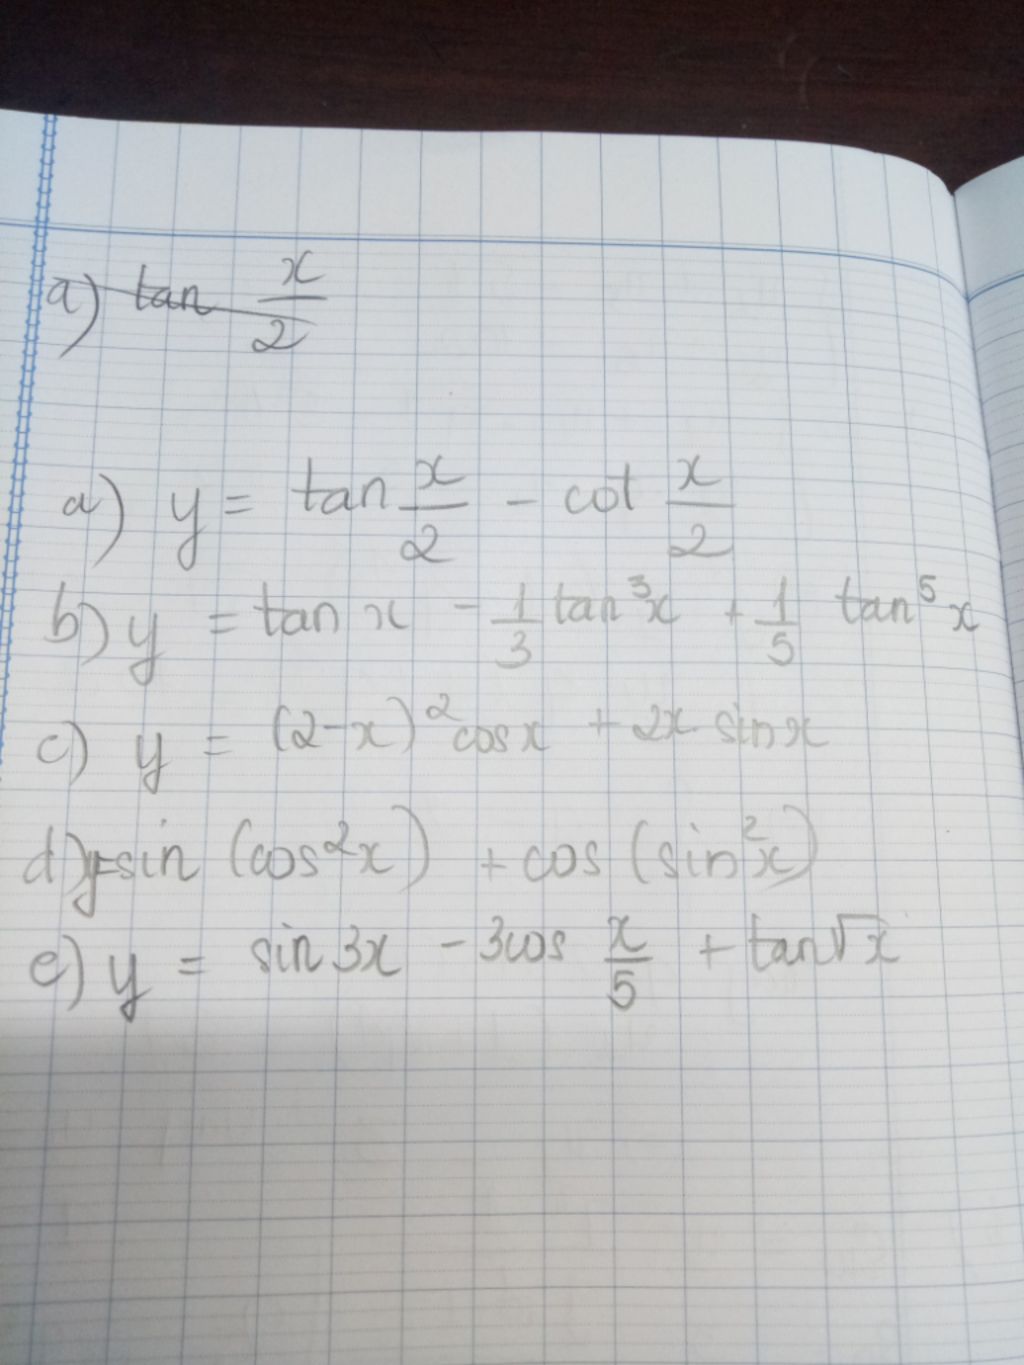 a) tan x/2
a) y = tan x/2 - cot x/2
b) y = tan x - 1/3 tan³x + 1/5 tan⁵x
c) y = (2-x)² cos x + 2x sin x
d) y = sin (cos²x) + cos (sin²x)
e) y = sin 3x - 3cos x/5 + tan √x